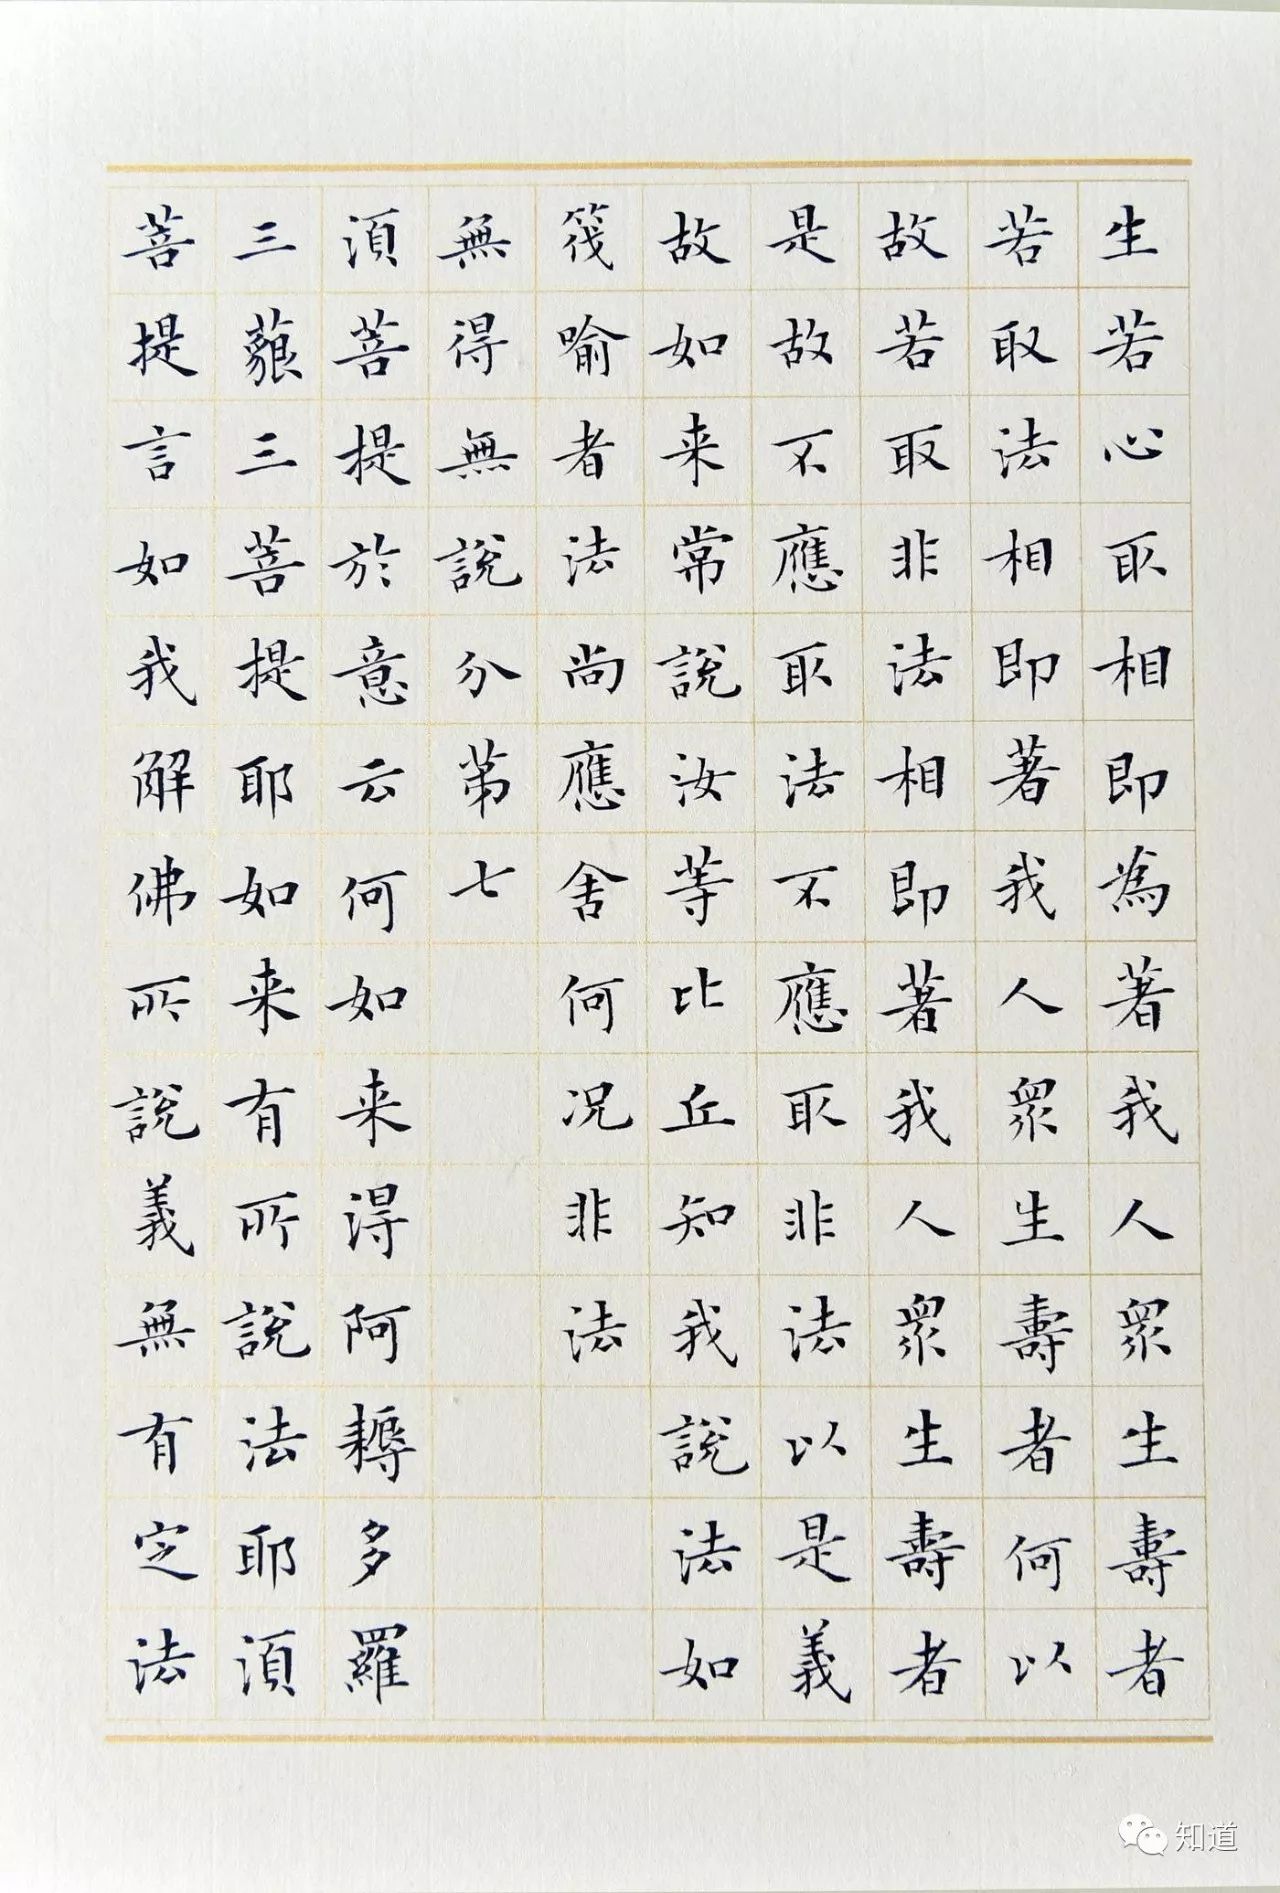 生若心取相即為著我人眾生壽者
若取法相即著我人眾生壽者何以
故若取非法相即著我人眾生壽者
是故不應取法不應取非法以是義
故如来常說汝等比丘知我說法如
筏喻者法尚應舍何况非法
無得無說分第七
湏菩提於意云何如来得阿耨多羅
三藐三菩提耶如来有所說法耶湏
菩提言如我解佛所說義無有定法
知道